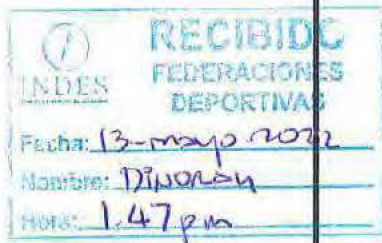 RECIBIDO
FEDERACIONES
DEPORTIVAS
INDES
Fecha: 13-mayo 2022
Nombre: DINORAH
Hora: 1:47 pm